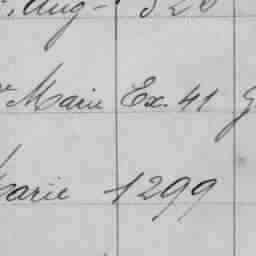 Aug- 320
Marie Ex. 41
Marie 1299